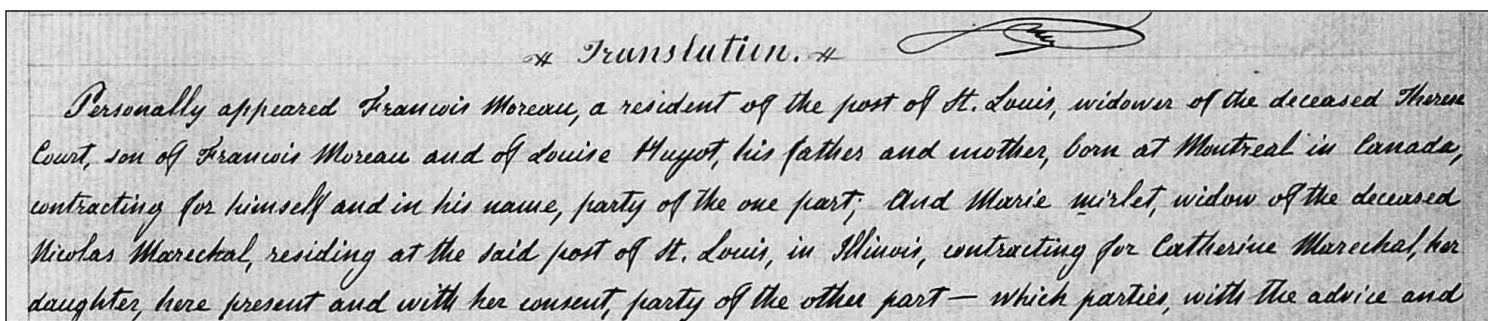 Translation.
Personally appeared Francois Moreau, a resident of the post of St. Louis, widower of the deceased Therese
Court, son of Francois Moreau and of Louise Huyot, his father and mother, born at Montreal in Canada,
contracting for himself and in his name, party of the one part; And Marie mirlet, widow of the deceased
Nicolas Marechal, residing at the said post of St. Louis, in Illinois, contracting for Catherine Marechal, her
daughter, here present and with her consent, party of the other part — which parties, with the advice and